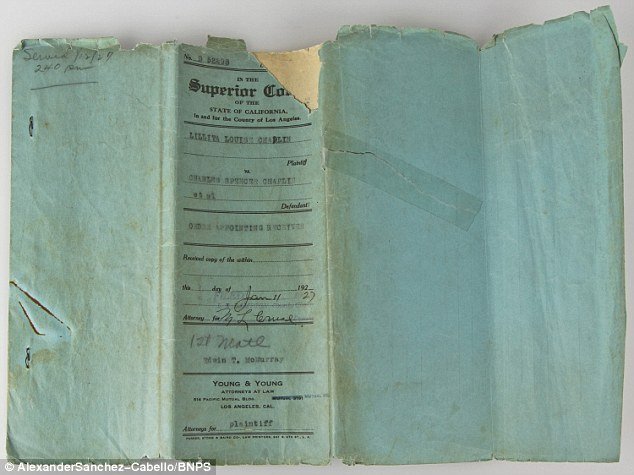 Served 1/12/27
2 40 pm
No. D 52298
IN THE
Superior Co
OF THE
STATE OF CALIFORNIA,
In and for the County of Los Angeles.
LILLITA LOUISE CHAPLIN
Plaintiff
vs.
CHARLES SPENCER CHAPLIN
et al
Defendant
ORDER APPOINTING RECEIVER
Received copy of the within
this day of 192
Jan 11 27
Attorney for
Edwin T. McMurray
YOUNG & YOUNG
ATTORNEYS AT LAW
514 PACIFIC MUTUAL BLDG.
LOS ANGELES, CAL.
Attorneys for plaintiff
PARKER, STONE & BAIRD CO., LAW PRINTERS,
© AlexanderSanchez-Cabello/BNPS